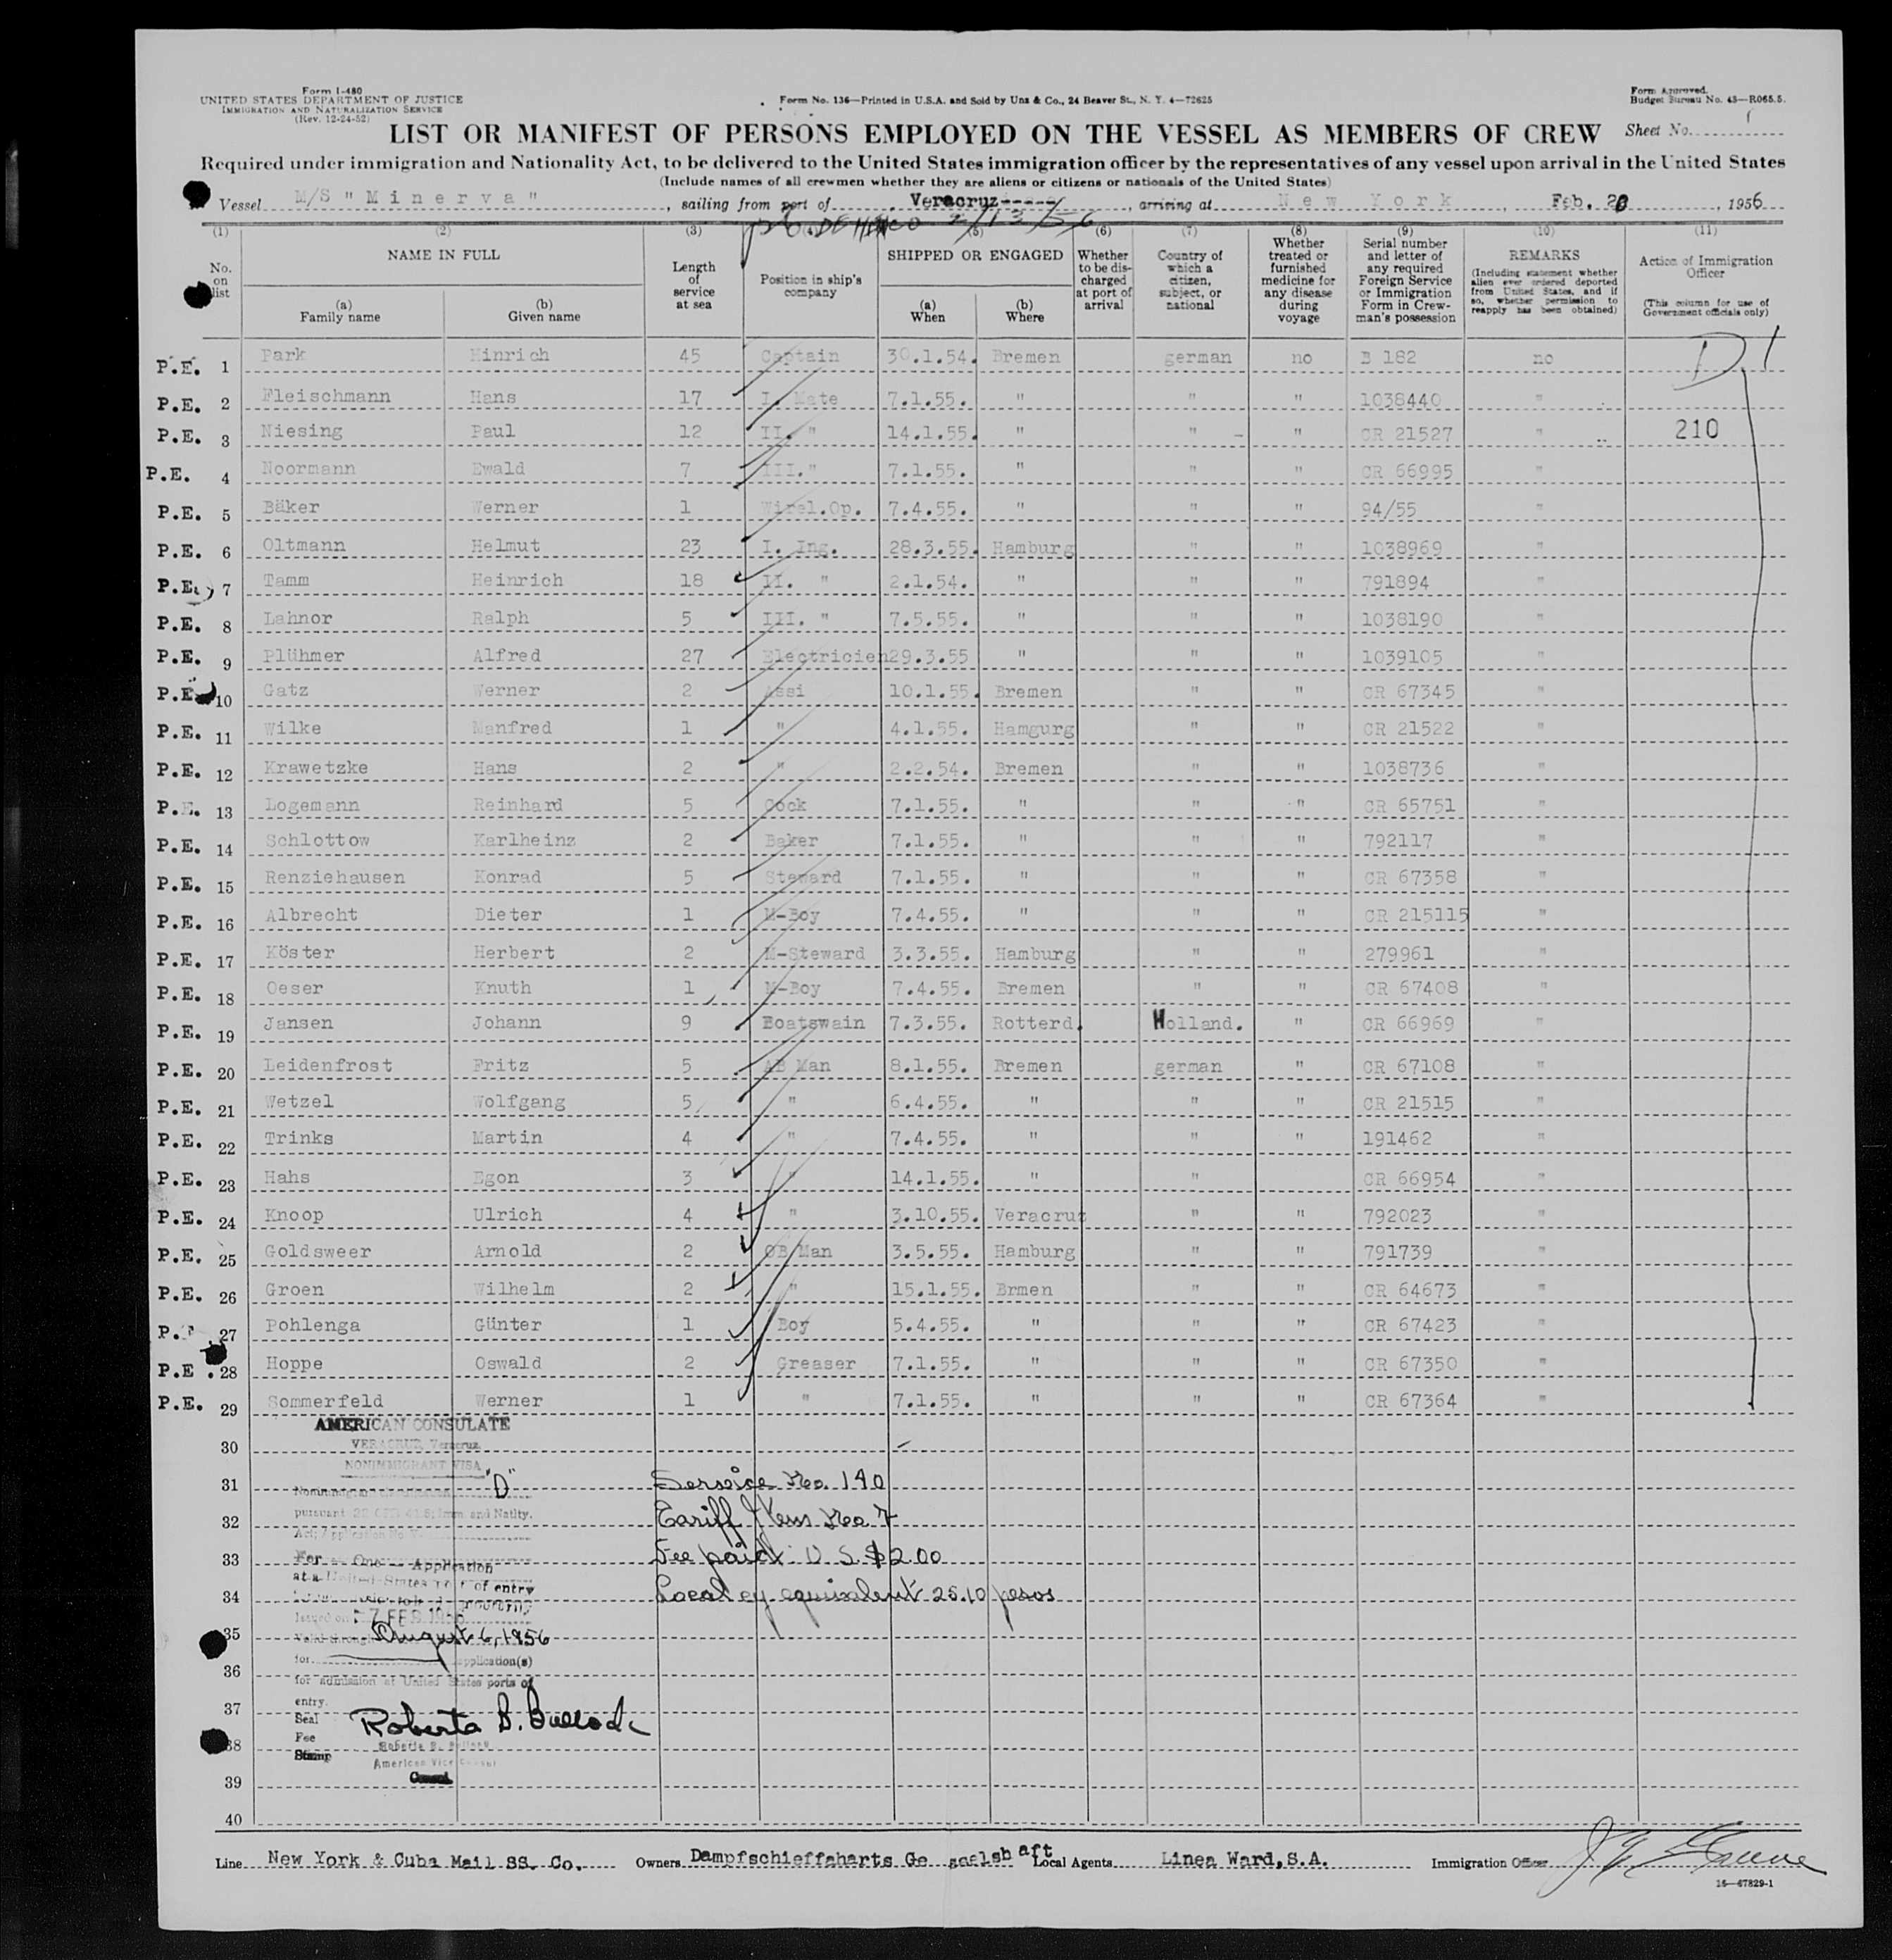 Form I-480
UNITED STATES DEPARTMENT OF JUSTICE
IMMIGRATION AND NATURALIZATION SERVICE
(Rev. 12-24-52)
Form No. 136—Printed in U.S.A. and Sold by Unz & Co., 24 Beaver St., N. Y. 4—72625
Form Approved.
Budget Bureau No. 43—R065.5.
LIST OR MANIFEST OF PERSONS EMPLOYED ON THE VESSEL AS MEMBERS OF CREW Sheet No. 1
Required under immigration and Nationality Act, to be delivered to the United States immigration officer by the representatives of any vessel upon arrival in the United States
(Include names of all crewmen whether they are aliens or citizens or nationals of the United States)
Vessel M/S "Minerva", sailing from port of Veracruz-----, arriving at New York, Feb. 20, 1956
2/13/56
(1) (2) (3) (4) (5) (6) (7) (8) (9) (10) (11)
No. on list
NAME IN FULL
(a) Family name
(b) Given name
Length of service at sea
Position in ship's company
SHIPPED OR ENGAGED
(a) When
(b) Where
Whether to be discharged at port of arrival
Country of which a citizen, subject, or national
Whether treated or furnished medicine for any disease during voyage
Serial number and letter of any required Foreign Service or Immigration Form in Crewman's possession
REMARKS
(Including statement whether alien ever ordered deported from United States, and if so, whether permission to reapply has been obtained)
Action of Immigration Officer
(This column for use of Government officials only)
P.E. 1 Park Hinrich 45 Captain 30.1.54. Bremen german no B 182 no D 1
P.E. 2 Fleischmann Hans 17 I. Mate 7.1.55. " " " 1038440 "
P.E. 3 Niesing Paul 12 II. " 14.1.55. " " " CR 21527 " 210
P.E. 4 Noormann Ewald 7 III." 7.1.55. " " " CR 66995 "
P.E. 5 Bäker Werner 1 Wirel.Op. 7.4.55. " " " 94/55 "
P.E. 6 Oltmann Helmut 23 I. Ing. 28.3.55. Hamburg " " 1038969 "
P.E. 7 Tamm Heinrich 18 II. " 2.1.54. " " " 791894 "
P.E. 8 Lahnor Ralph 5 III. " 7.5.55. " " " 1038190 "
P.E. 9 Plühmer Alfred 27 Electricien 29.3.55 " " " 1039105 "
P.E. 10 Gatz Werner 2 Assi 10.1.55. Bremen " " CR 67345 "
P.E. 11 Wilke Manfred 1 " 4.1.55. Hamgurg " " CR 21522 "
P.E. 12 Krawetzke Hans 2 " 2.2.54. Bremen " " 1038736 "
P.E. 13 Logemann Reinhard 5 Cock 7.1.55. " " " CR 65751 "
P.E. 14 Schlottow Karlheinz 2 Baker 7.1.55. " " " 792117 "
P.E. 15 Renziehausen Konrad 5 Steward 7.1.55. " " " CR 67358 "
P.E. 16 Albrecht Dieter 1 M-Boy 7.4.55. " " " CR 215115 "
P.E. 17 Köster Herbert 2 M-Steward 3.3.55. Hamburg " " 279961 "
P.E. 18 Oeser Knuth 1 M-Boy 7.4.55. Bremen " " CR 67408 "
P.E. 19 Jansen Johann 9 Boatswain 7.3.55. Rotterd. Holland. " CR 66969 "
P.E. 20 Leidenfrost Fritz 5 AB Man 8.1.55. Bremen german " CR 67108 "
P.E. 21 Wetzel Wolfgang 5 " 6.4.55. " " " CR 21515 "
P.E. 22 Trinks Martin 4 " 7.4.55. " " " 191462 "
P.E. 23 Hahs Egon 3 " 14.1.55. " " CR 66954 "
P.E. 24 Knoop Ulrich 4 " 3.10.55. Veracruz " " 792023 "
P.E. 25 Goldsweer Arnold 2 OB Man 3.5.55. Hamburg " " 791739 "
P.E. 26 Groen Wilhelm 2 " 15.1.55. Brmen " " CR 64673 "
P. 27 Pohlenga Günter 1 Boy 5.4.55. " " " CR 67423 "
P.E. 28 Hoppe Oswald 2 Greaser 7.1.55. " " " CR 67350 "
P.E. 29 Sommerfeld Werner 1 " 7.1.55. " " " CR 67364 "
AMERICAN CONSULATE
30 VERACRUZ, Veracruz
NONIMMIGRANT VISA
31 "D" Service No. 140
32 pursuant Imm. and Natlty. Tariff Item No 7
33 For One Application Fee paid: U.S. $2.00
at a United States port of entry
34 Local cy equivalent 25.10 pesos
Issued on 7 FEB 1956
35 Valid through August 6, 1956
for application(s)
36 for admission at United States ports of
entry.
37 Seal Roberta B. Bullock
Fee
38 Roberta B. Bullock
Stamp American Vice Consul
Consul
39
40
Line New York & Cuba Mail SS. Co. Owners Dampfschieffaharts Ge saelsh aft Local Agents Linea Ward,S.A. Immigration Officer
16—67829-1